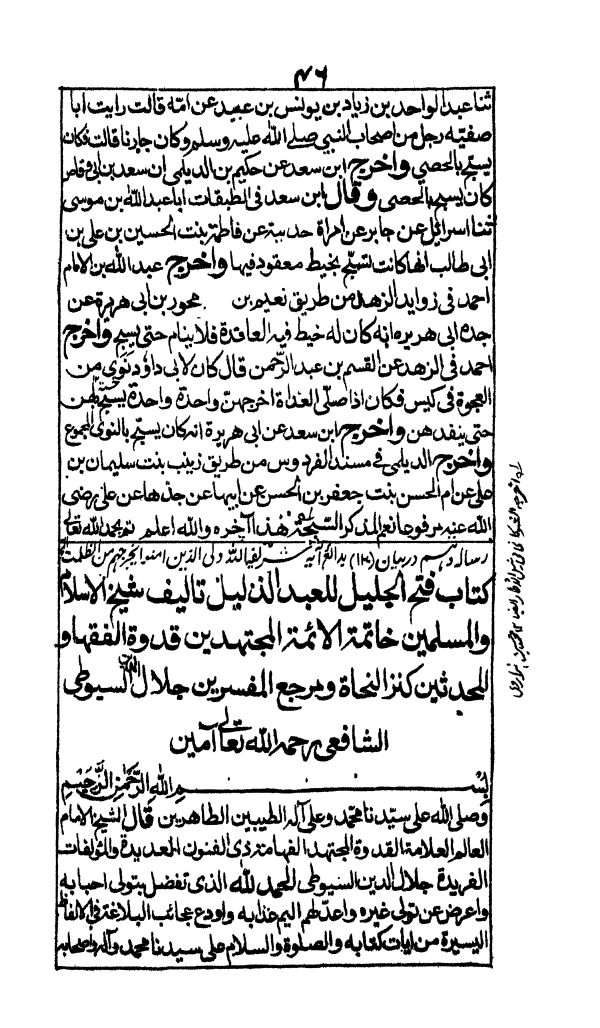 ٤٦
ثنا عبد الواحد بن زياد بن يونس بن عبيد عن امه قالت رايت ابا
صفيه رجل من اصحاب النبي صلے الله عليه وسلم وكان جارنا قالت فكان
يسبح بالحصى واخرج ابن سعد عن حكيم بن الديلمى ان سعد بن ابى وقاص
كان يسبح بالحصى وقال ابن سعد فى الطبقات ابا عبد الله بن موسى
ثنا اسرائيل عن جابر عن امراة حدثته عن فاطمة بنت الحسين بن على بن
ابى طالب انها كانت تسبح بخيط معقود فيها واخرج عبد الله بن الامام
احمد فى زوايد الزهد من طريق نعيم بن محور بن ابى هريرة عن
جده ابى هريره انه كان له خيط فيه العاقدة فلا ينام حتى يسبح واخرج
احمد فى الزهد عن القسم بن عبد الرحمن قال كان لابى داود نوى من
العجوة فى كيس فكان اذا صلى الغداة اخرجهن واحدة واحدة يسبح بهن
حتى ينفدهن واخرج ابن سعد عن ابى هريرة انه كان يسبح بالنوى المجموع
واخرج الديلمى فى مسند الفردوس من طريق زينب بنت سليمان بن
على عن ام الحسن بنت جعفر بن الحسن عن ابيها عن جدها عن على رضى
الله عنه مرفوعا نعم المذكر السبحة هذا آخره والله اعلم تم بحمد الله تعالى
رساله دهم در بيان (١٢٠) بدائع آية شريفه الله ولى الذين امنوا يخرجهم من الظلمت
كتاب فتح الجليل للعبد الذليل تاليف شيخ الاسلام
والمسلمين خاتمة الائمة المجتهدين قدوة الفقها و
المحدثين كنز النحاة ومرجع المفسرين جلال الدين السيوطى
الشافعى رحمه الله تعالى آمين
بسم الله الرحمن الرحيم
وصلى الله على سيدنا محمد وعلى آله الطيبين الطاهرين قال الشيخ الامام
العالم العلامة القدوة المجتهد الفهامة ذى الفنون العديدة والمؤلفات
الفريدة جلال الدين السيوطى الحمد لله الذى تفضل بتولى احبابه
واعرض عن تولى غيره واعد لهم اليم عذابه واودع عجائب البلاغة فى الالفاظ
اليسيرة من ايات كتابه والصلوة والسلام على سيدنا محمد وآله واصحابه